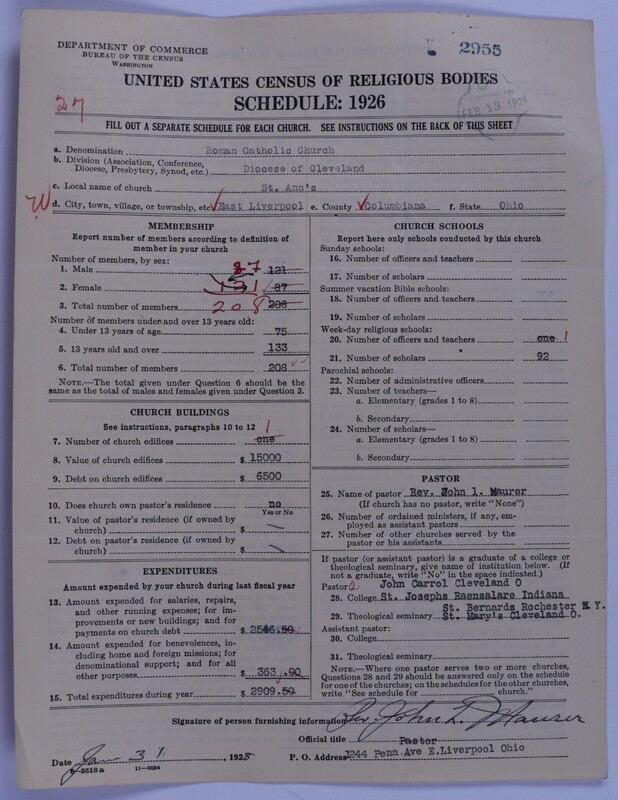 DEPARTMENT OF COMMERCE
BUREAU OF THE CENSUS
WASHINGTON
2955
UNITED STATES CENSUS OF RELIGIOUS BODIES
SCHEDULE: 1926
27
FEB 13 192
FILL OUT A SEPARATE SCHEDULE FOR EACH CHURCH. SEE INSTRUCTIONS ON THE BACK OF THIS SHEET
a. Denomination Roman Catholic Church
b. Division (Association, Conference, Diocese, Presbytery, Synod, etc.) Diocese of Cleveland
c. Local name of church St. Ann's
W d. City, town, village, or township, etc. East Liverpool e. County Columbiana f. State Ohio
MEMBERSHIP
Report number of members according to definition of
member in your church
Number of members, by sex:
1. Male 87 121
2. Female 121 87
3. Total number of members 208 208
Number of members under and over 13 years old:
4. Under 13 years of age 75
5. 13 years old and over 133
6. Total number of members 208
NOTE.—The total given under Question 6 should be the
same as the total of males and females given under Question 3.
CHURCH BUILDINGS
See instructions, paragraphs 10 to 12
7. Number of church edifices one 1
8. Value of church edifices $ 15000
9. Debt on church edifices $ 6500
10. Does church own pastor's residence no
Yes or No
11. Value of pastor's residence (if owned by
church) $
12. Debt on pastor's residence (if owned by
church) $
EXPENDITURES
Amount expended by your church during last fiscal year
13. Amount expended for salaries, repairs,
and other running expenses; for im-
provements or new buildings; and for
payments on church debt $ 2546.50
14. Amount expended for benevolences, in-
cluding home and foreign missions; for
denominational support; and for all
other purposes $ 363.00
15. Total expenditures during year $ 2909.50
CHURCH SCHOOLS
Report here only schools conducted by this church
Sunday schools:
16. Number of officers and teachers
17. Number of scholars
Summer vacation Bible schools:
18. Number of officers and teachers
19. Number of scholars
Week-day religious schools:
20. Number of officers and teachers one 1
21. Number of scholars 92
Parochial schools:
22. Number of administrative officers
23. Number of teachers—
a. Elementary (grades 1 to 8)
b. Secondary
24. Number of scholars—
a. Elementary (grades 1 to 8)
b. Secondary
PASTOR
25. Name of pastor Rev. John l. Maurer
(If church has no pastor, write "None")
26. Number of ordained ministers, if any, em-
ployed as assistant pastors
27. Number of other churches served by the
pastor or his assistants
If pastor (or assistant pastor) is a graduate of a college or
theological seminary, give name of institution below. (If
not a graduate, write "No" in the space indicated.)
Pastor: 2 John Carrol Cleveland O
28. College St. Josephs Raensalare Indiana
St. Bernards Rochester N.Y.
29. Theological seminary St. Mary's Cleveland O.
Assistant pastor:
30. College
31. Theological seminary
NOTE.—Where one pastor serves two or more churches,
Questions 28 and 29 should be answered only on the schedule
for one of the churches; on the schedules for the other churches,
write "See schedule for church."
Signature of person furnishing information Rev. John L. Maurer
Official title Pastor
Date Jan 31, 1928 P. O. Address 1244 Penn. Ave E.Liverpool Ohio
8—5518a 11—9024